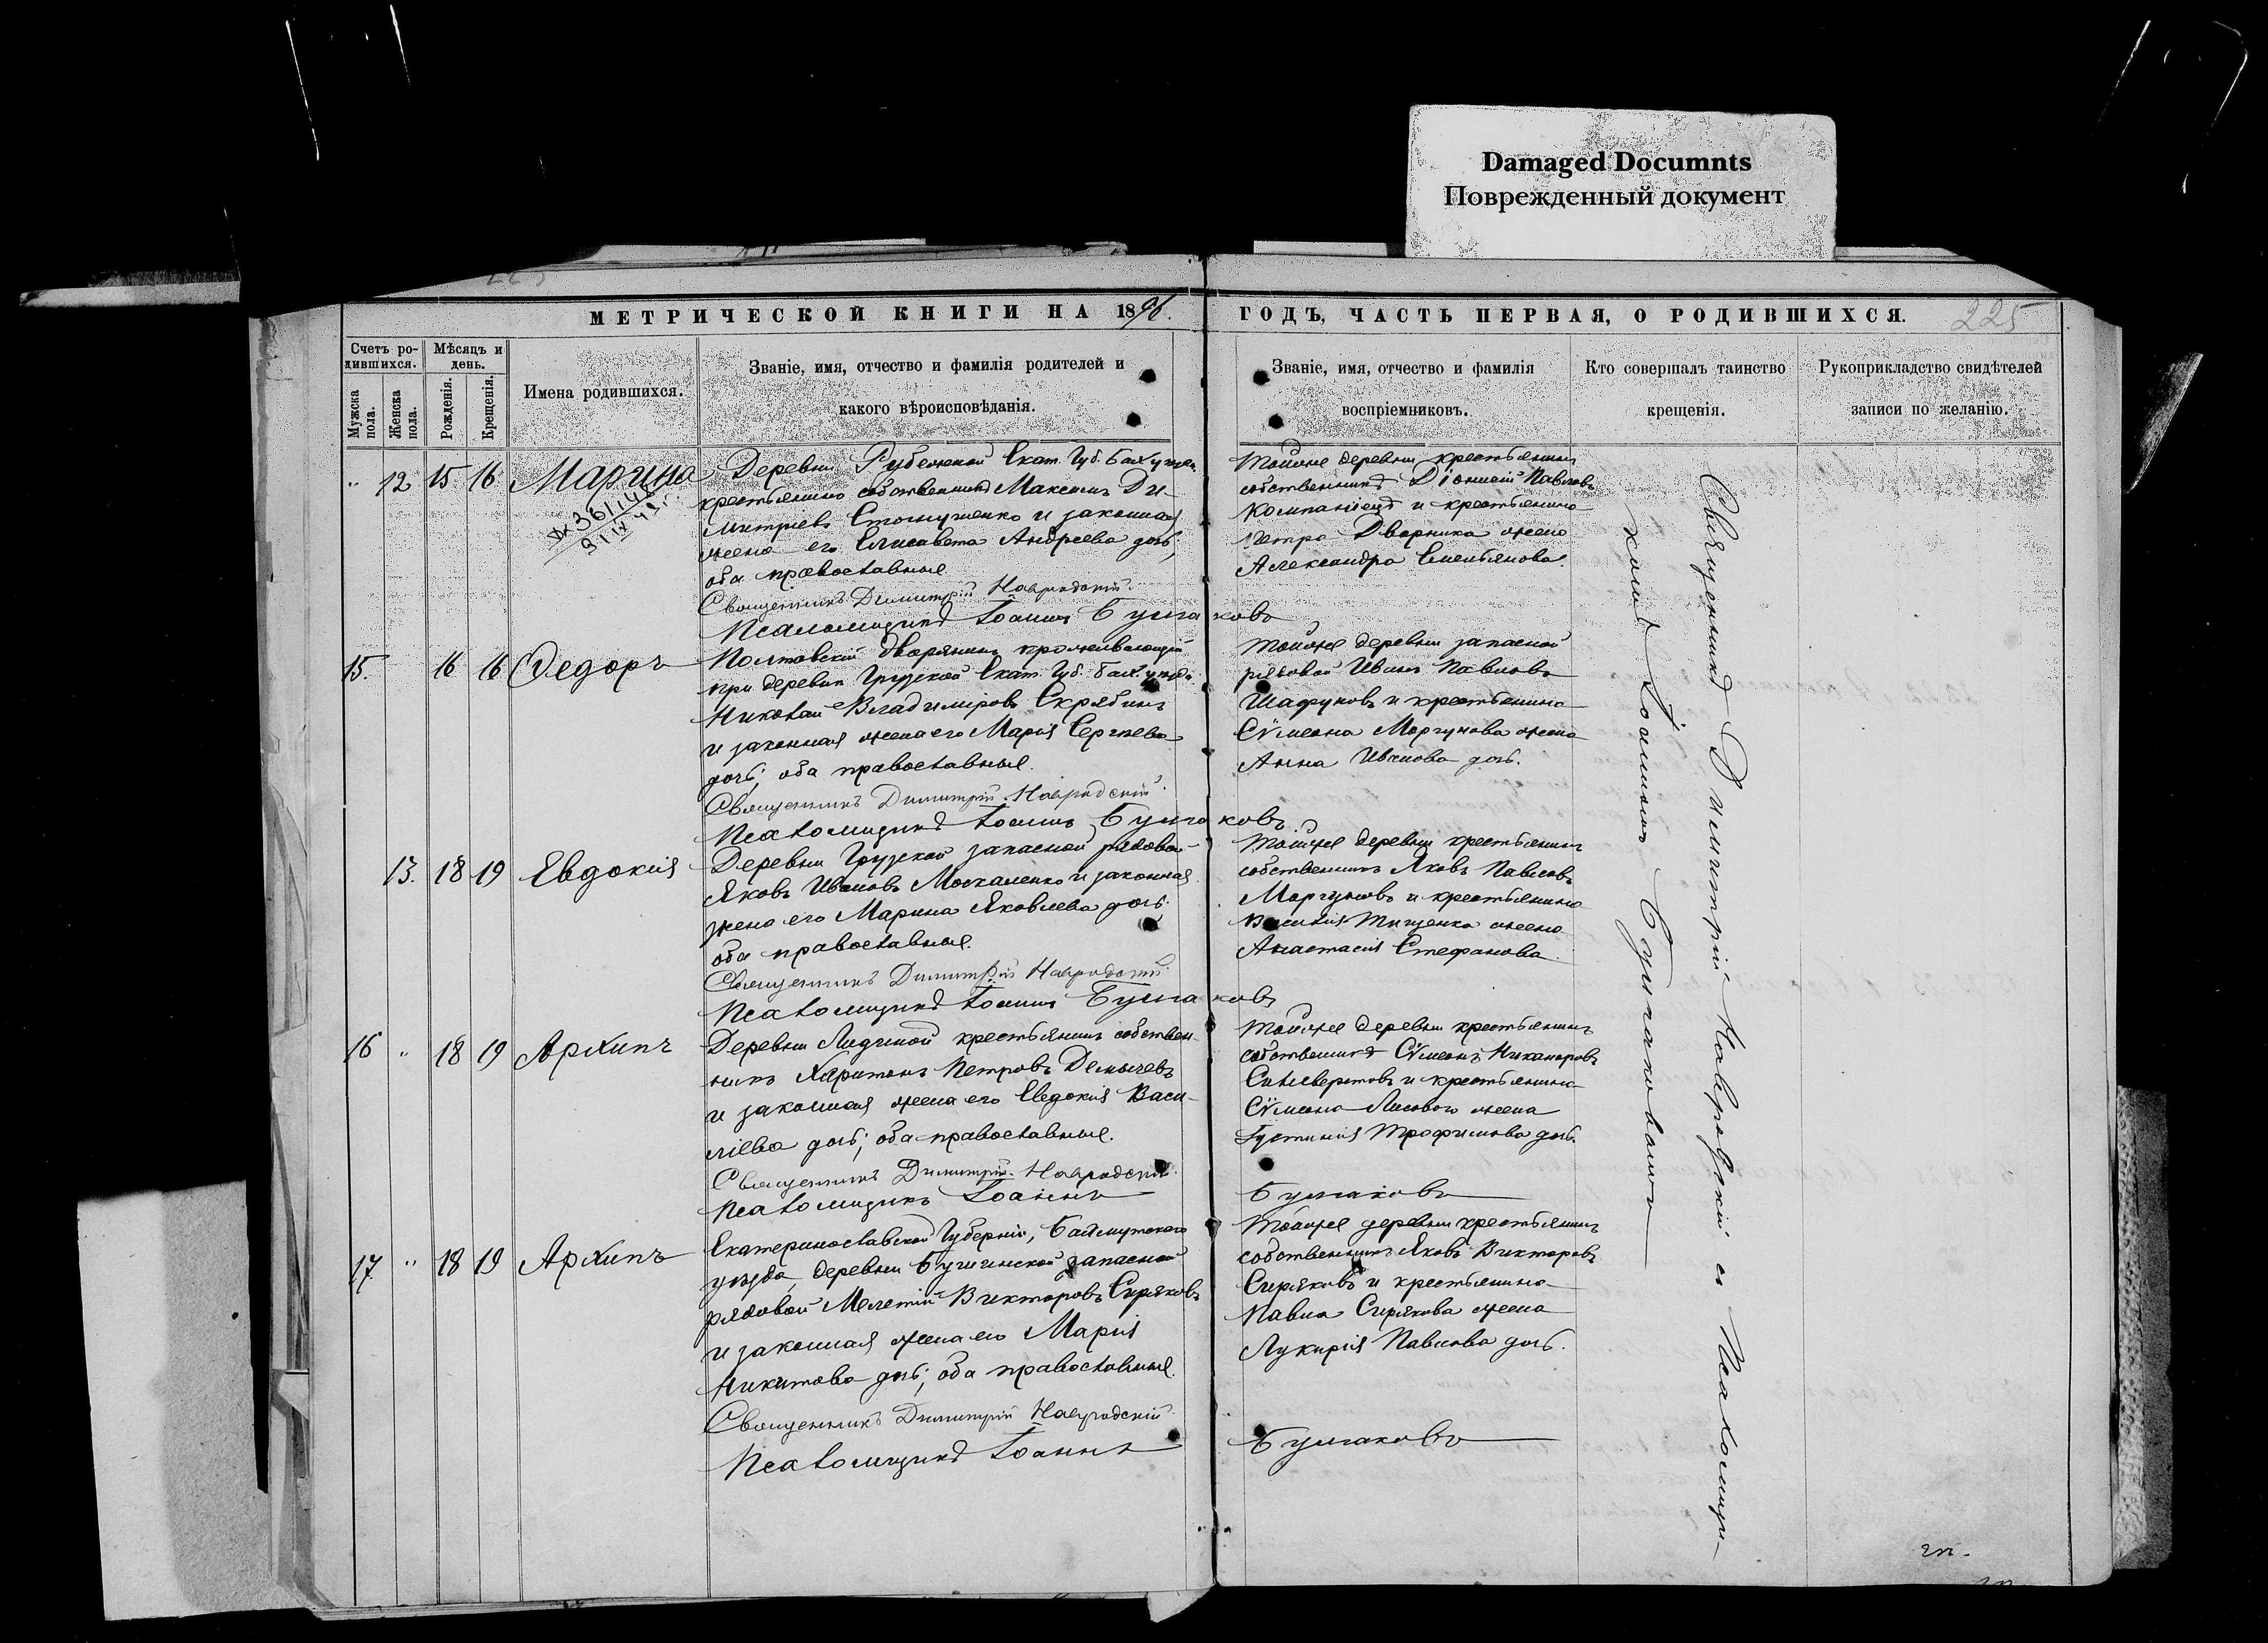 Damaged Documnts
Поврежденный документ
МЕТРИЧЕСКОЙ КНИГИ НА 1896.
ГОДЪ, ЧАСТЬ ПЕРВАЯ, О РОДИВШИХСЯ.
225
Счетъ ро-
дившихся.
Мѣсяцъ и
день.
Мужска пола.
Женска пола.
Рожденія.
Крещенія.
Имена родившихся.
Званіе, имя, отчество и фамилія родителей и
какого вѣроисповѣданія.
Званіе, имя, отчество и фамилія
воспріемниковъ.
Кто совершалъ таинство
крещенія.
Рукоприкладство свидѣтелей
записи по желанію.
" 12 15 16 Марина
Деревни Екат. Губ. Бах. уѣзда
крестьянинъ собственникъ Максимъ Ди-
митріевъ и законная
жена его Елисавета Андреева дочь,
оба православные
Священникъ Димитрій Навродскій.
Псаломщикъ Іоаннъ Булгаковъ
Тойже деревни крестьянинъ
собственникъ Діонисій Павловъ
Компаніецъ и крестьянина
Петра Дворника жена
Александра Емельянова.
15. 16 16 Федоръ
Полтавскій дворянинъ проживающій
при деревни Грузской Екат. Губ. Бах. уѣзда
Николай Владиміровъ Скрябинъ
и законная жена его Марія Сергѣева
дочь; оба православные.
Священникъ Димитрій Навродскій.
Псаломщикъ Іоаннъ Булгаковъ
Тойже деревни запасной
рядовой Иванъ Павловъ
Шафруновъ и крестьянина
Сѵмеона Моргунова жена
Анна Иванова дочь.
13. 18 19 Евдокія
Деревни Грузской запасной рядовой
Яковъ Ивановъ Москаленко и законная
жена его Марина Яковлева дочь;
оба православные.
Священникъ Димитрій Навродскій
Псаломщикъ Іоаннъ Булгаковъ
Тойже деревни крестьянинъ
собственникъ Яковъ Павловъ
Моргуновъ и крестьянина
Василія Тищенка жена
Анастасія Стефанова.
16 " 18 19 Архипъ
Деревни крестьянинъ собствен-
никъ Харитонъ Петровъ
и законная жена его Евдокія Васи-
ліева дочь; оба православные.
Священникъ Димитрій Навродскій.
Псаломщикъ Іоаннъ
Булгаковъ
Тойже деревни крестьянинъ
собственникъ Сѵмеонъ Никаноровъ
Селиверстовъ и крестьянина
Сѵмеона Лисового жена
Іустинія Трофимова дочь.
17. " 18 19 Архипъ
Екатеринославской Губерніи, Бахмутского
уѣзда, деревни запасной
рядовой Мелетій Викторовъ Сиряковъ
и законная жена его Марія
Никитова дочь; оба православные.
Священникъ Димитрій Навродскій
Псаломщикъ Іоаннъ
Булгаковъ
Тойже деревни крестьянинъ
собственникъ Яковъ Викторовъ
Сиряковъ и крестьянина
Павла Сирякова жена
Лукерія Павлова дочь.
Священникъ Димитрій Навродскій съ Псаломщи-
комъ Іоанномъ Булгаковымъ